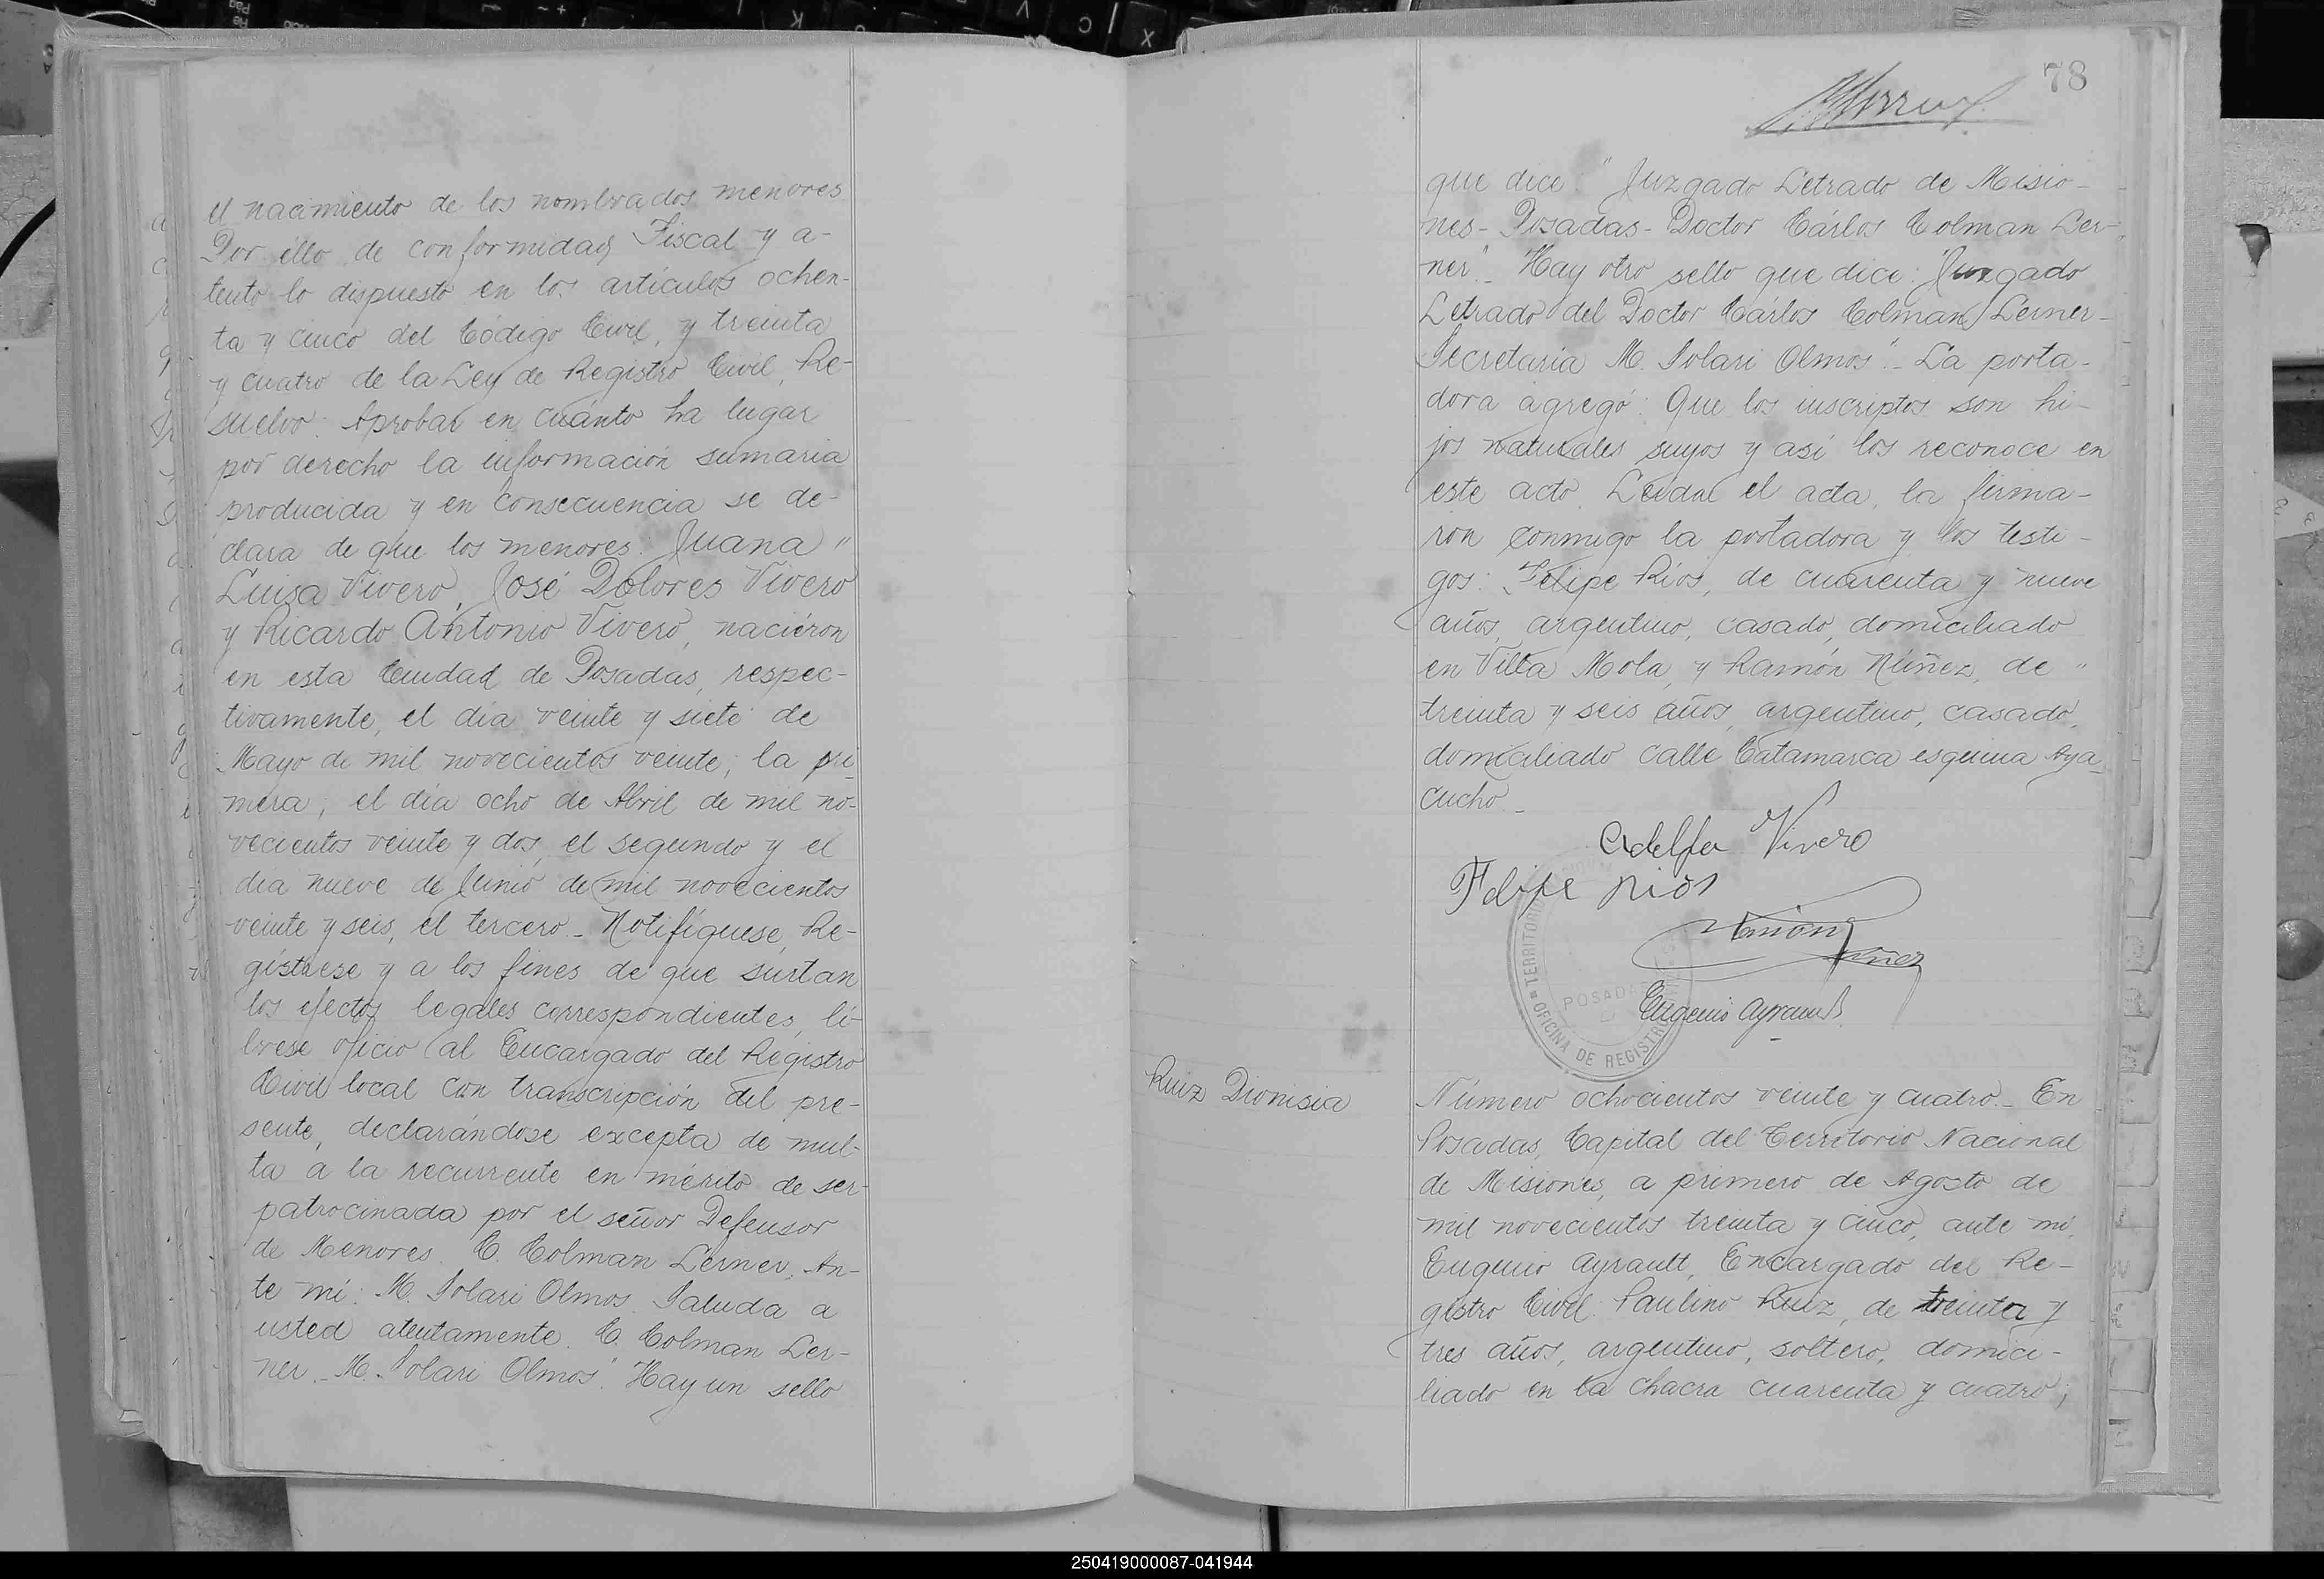 el nacimiento de los nombrados menores
Por ello de conformidad Fiscal y a-
tento lo dispuesto en los artículos ochen-
ta y cinco del Código Civil, y treinta
y cuatro de la Ley de Registro Civil, Re-
suelvo: Aprobar en cuánto ha lugar
por derecho la información sumaria
producida y en consecuencia se de-
clara de que los menores: Juana "
Luisa Vivero, José Dolores Vivero
y Ricardo Antonio Vivero, naciéron
en esta Ciudad de Posadas, respec-
tivamente, el día veinte y siete de
Mayo de mil novecientos veinte; la pri-
mera; el día ocho de Abril de mil no-
vecientos veinte y dos, el segundo y el
día nueve de Junio de mil novecientos
veinte y seis, el tercero.- Notifíquese, Re-
gístrese y a los fines de que surtan
los efectos legales correspondientes, lí-
brese oficio al Encargado del Registro
Civil local con transcripción del pre-
sente, declarándose excepta de mul-
ta a la recurrente en mérito de ser
patrocinada por el señor Defensor
de Menores. C. Colman Lerner. An-
te mí: M. Solari Olmos. Saluda a
usted atentamente. C. Colman Ler-
ner.- M. Solari Olmos". Hay un sello
78
que dice: "Juzgado Letrado de Misio-
nes- Posadas- Doctor Cárlos Colman Ler-
ner".- Hay otro sello que dice: "Juzgado
Letrado del Doctor Cárlos Colman Lerner-
Secretaria M. Solari Olmos".- La porta-
dora agregó: Que los inscriptos son hi-
jos naturales suyos y así los reconoce en
este acto. Leída el acta, la firma-
ron conmigo la portadora y los testi-
gos: Felipe Ríos, de cuarenta y nueve
años, argentino, casado, domiciliado
en Villa Mola, y Ramón Núñez, de "
treinta y seis años, argentino, casado,
domiciliado calle Catamarca esquina Aya-
cucho.-
Adelfa Vivero
Felipe Rios
Ramón
Núñez
TERRITORIO
POSADAS
OFICINA DE REGISTRO
Eugenio Ayrault
Ruiz Dionisia
Número ochocientos veinte y cuatro.- En
Posadas, Capital del Territorio Nacional
de Misiones, a primero de Agosto de
mil novecientos treinta y cinco, ante mí,
Eugenio Ayrault, Encargado del Re-
gistro Civil: Paulino Ruiz, de treinta y
tres años, argentino, soltero, domici-
liado en la chacra cuarenta y cuatro;
250419000087-041944